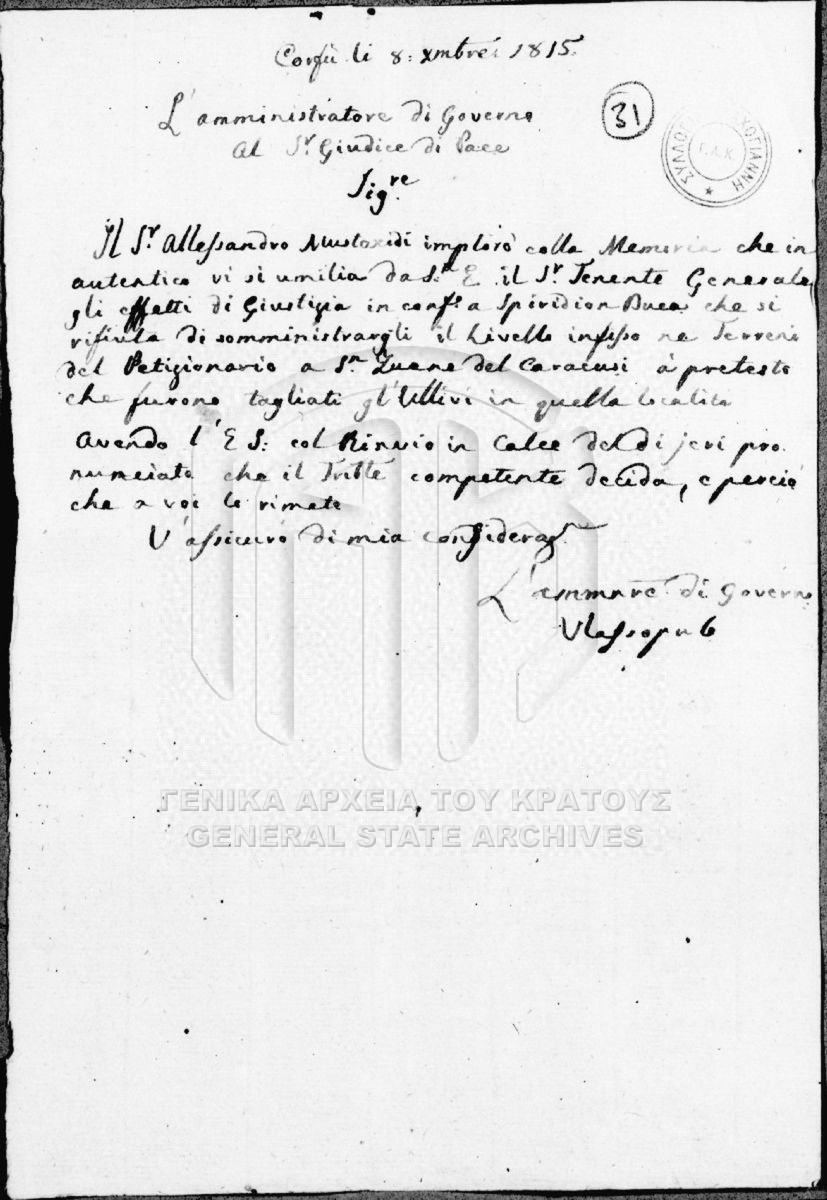 Corfù li 8: Xmbre: 1815.
L'amministratore di Governo
Al Sr. Giudice di Pace
31
Sigre.
Il Sr. Allessandro Mustoxidi implorò colla Memoria che in
autentico vi si umilia da S. E il Sr. Tenente Generale
gli effetti di Giustizia in a Spiridion che si
rifiuta di somministrargli il Livello infisso ne Terreni
del Petizionario a Sn. Zuane del à pretesto
che furono tagliati gl'Ullivi in quella località
Avendo l'E S: col Rinvio in Calce del dì jeri pro
nunciato che il Trible competente decida, e perciò
che a voi le rimete
V'assicuro di mia consideraz.
L'ammre di Governo
Vlassopulo
ΓΕΝΙΚΑ ΑΡΧΕΙΑ ΤΟΥ ΚΡΑΤΟΥΣ
GENERAL STATE ARCHIVES